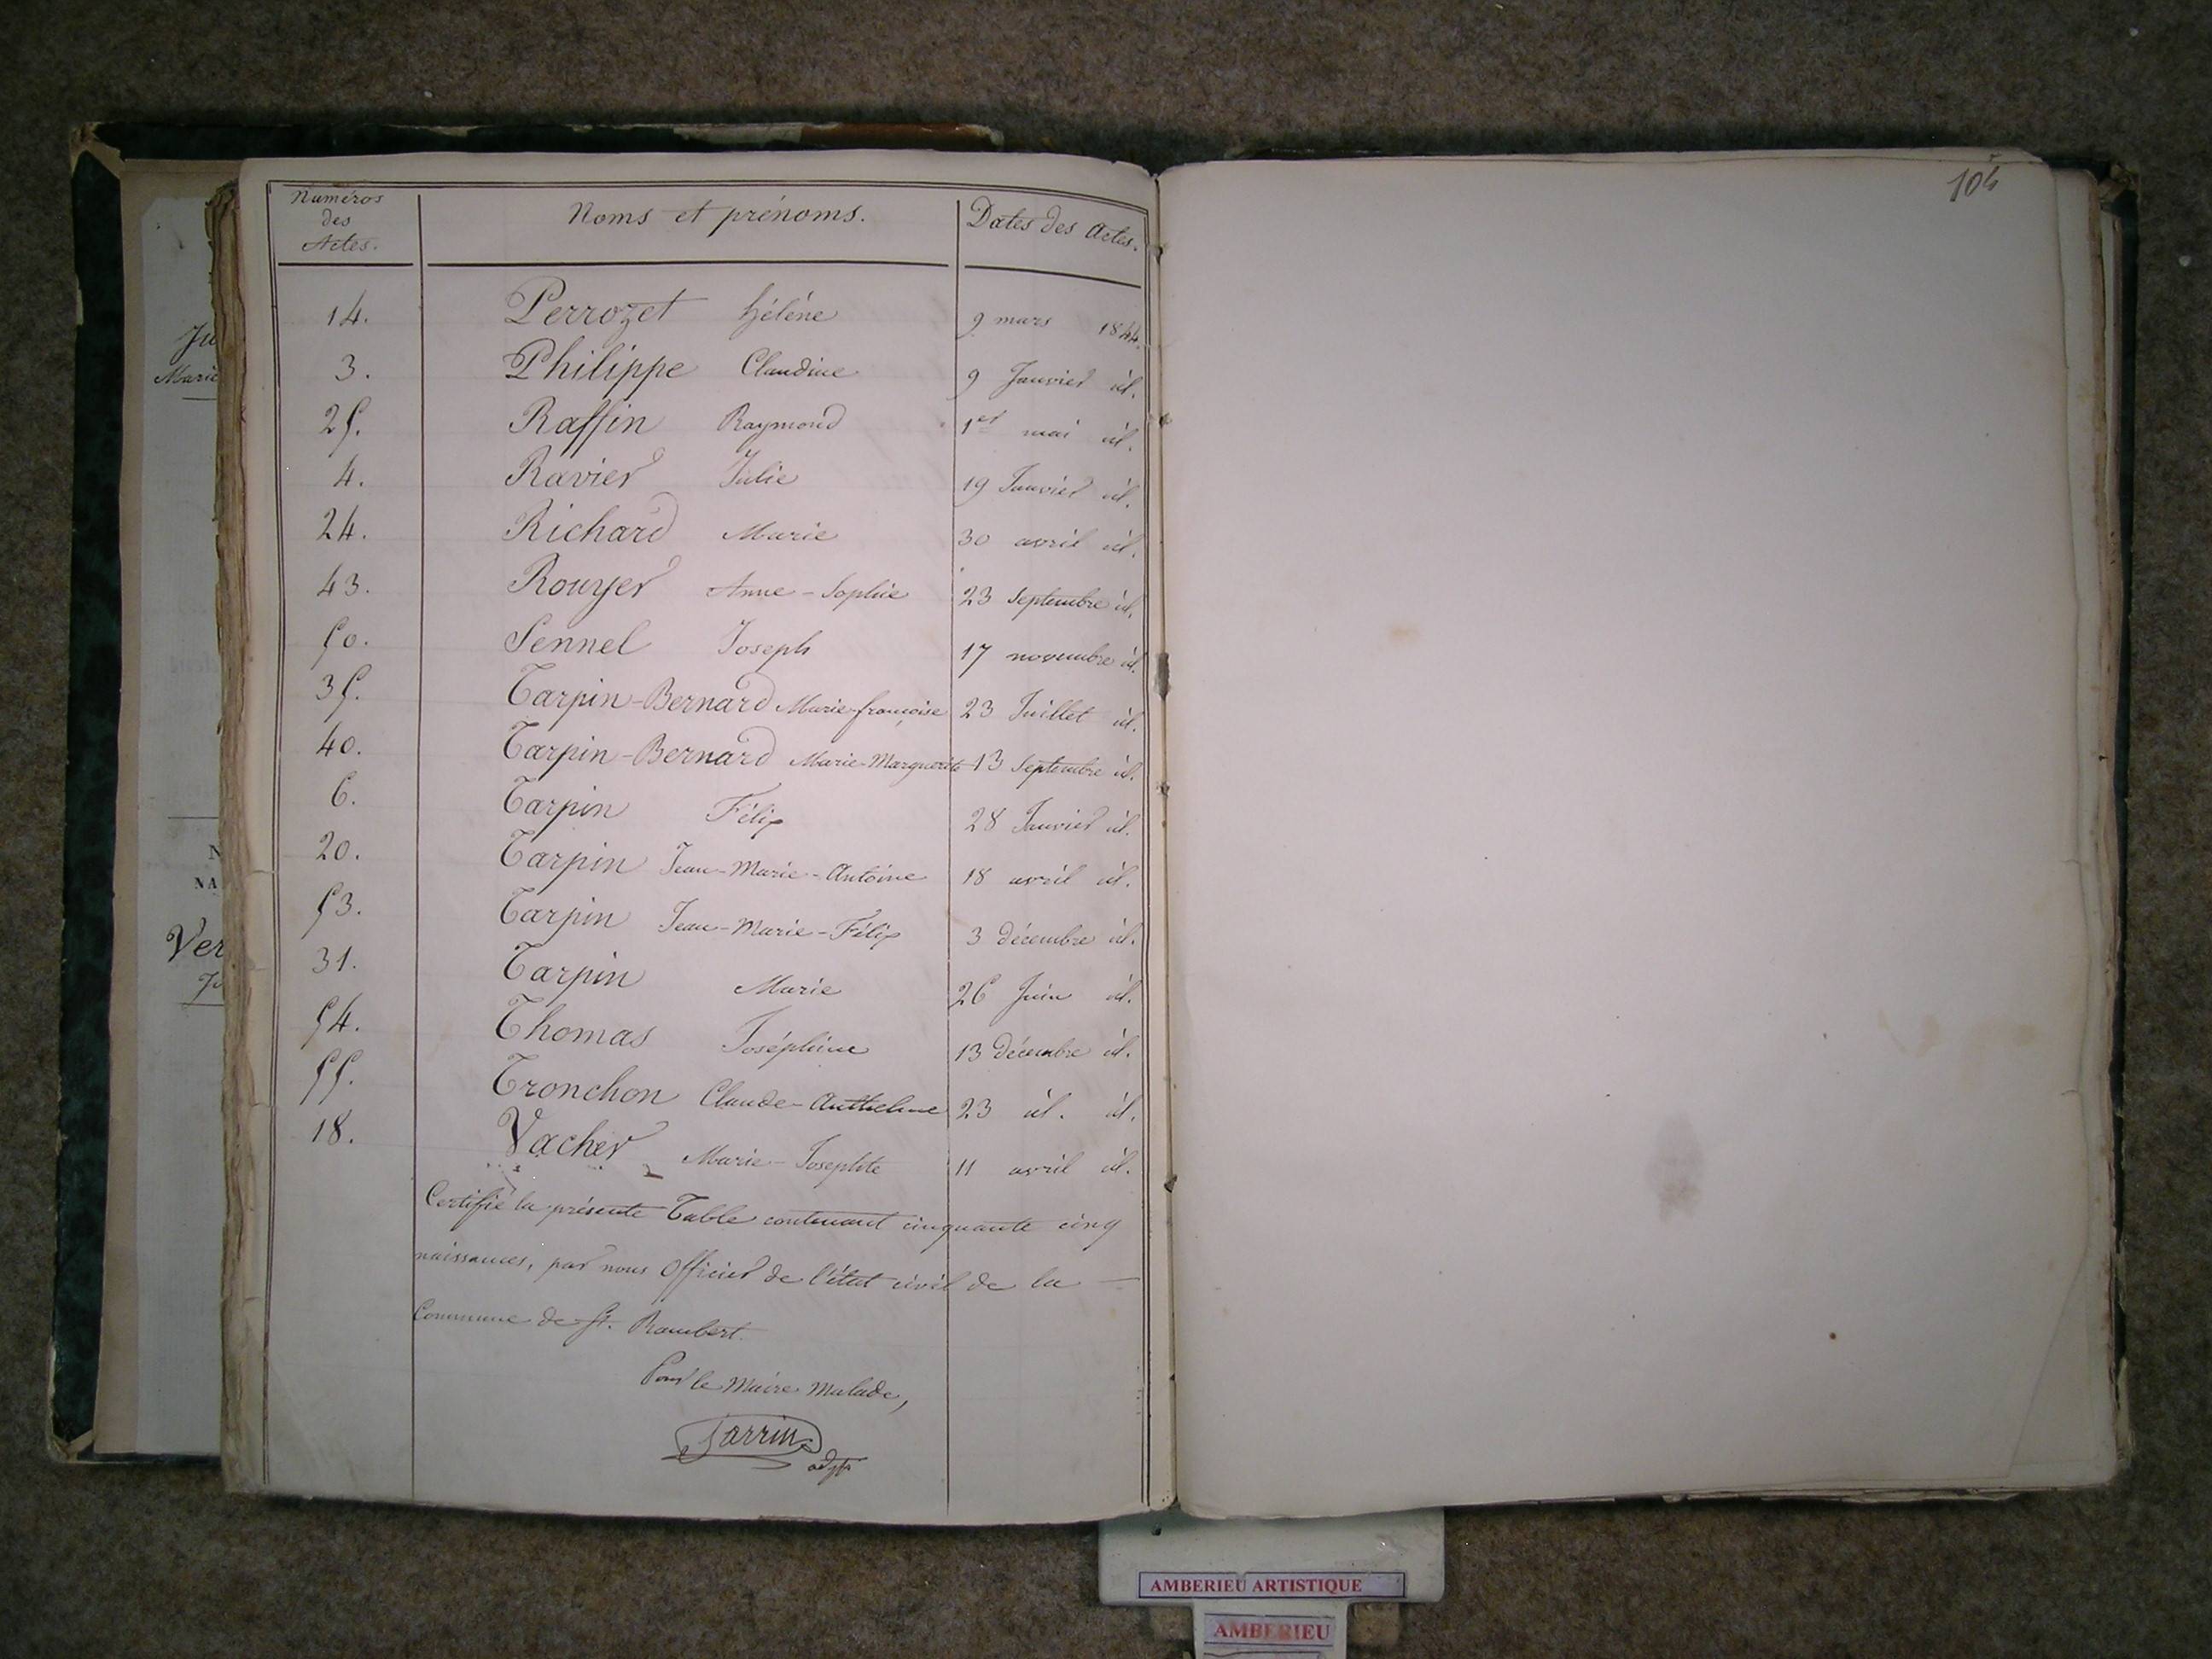 Numéros
des
Actes.
Noms et prénoms.
Dates des Actes.
14. Perrozet Hélène 9 mars 1844.
3. Philippe Claudine 9 Janvier id.
25. Raffin Raymond 1er mai id.
4. Ravier Julie 19 Janvier id.
24. Richard Marie 30 avril id.
43. Rouyer Anne-Sophie 23 Septembre id.
50. Sennel Joseph 17 novembre id.
35. Tarpin-Bernard Marie-françoise 23 Juillet id.
40. Tarpin-Bernard Marie-Marguerite 13 Septembre id.
6. Tarpin Félix 28 Janvier id.
20. Tarpin Jean-Marie-Antoine 18 avril id.
53. Tarpin Jean-Marie-Félix 3 décembre id.
31. Tarpin Marie 26 Juin id.
54. Thomas Joséphine 13 décembre id.
55. Tronchon Claude-Anthelme 23 id. id.
18. Vacher Marie-Josephte 11 avril id.
Certifié la présente Table contenant cinquante cinq
naissances, par nous Officier de l'état civil de la
Commune de St. Rambert.
Pour le Maire Malade,
Jarrin
adjt
104
Ju
Marie
N
NA
Ver
AMBERIEU ARTISTIQUE
AMBERIEU